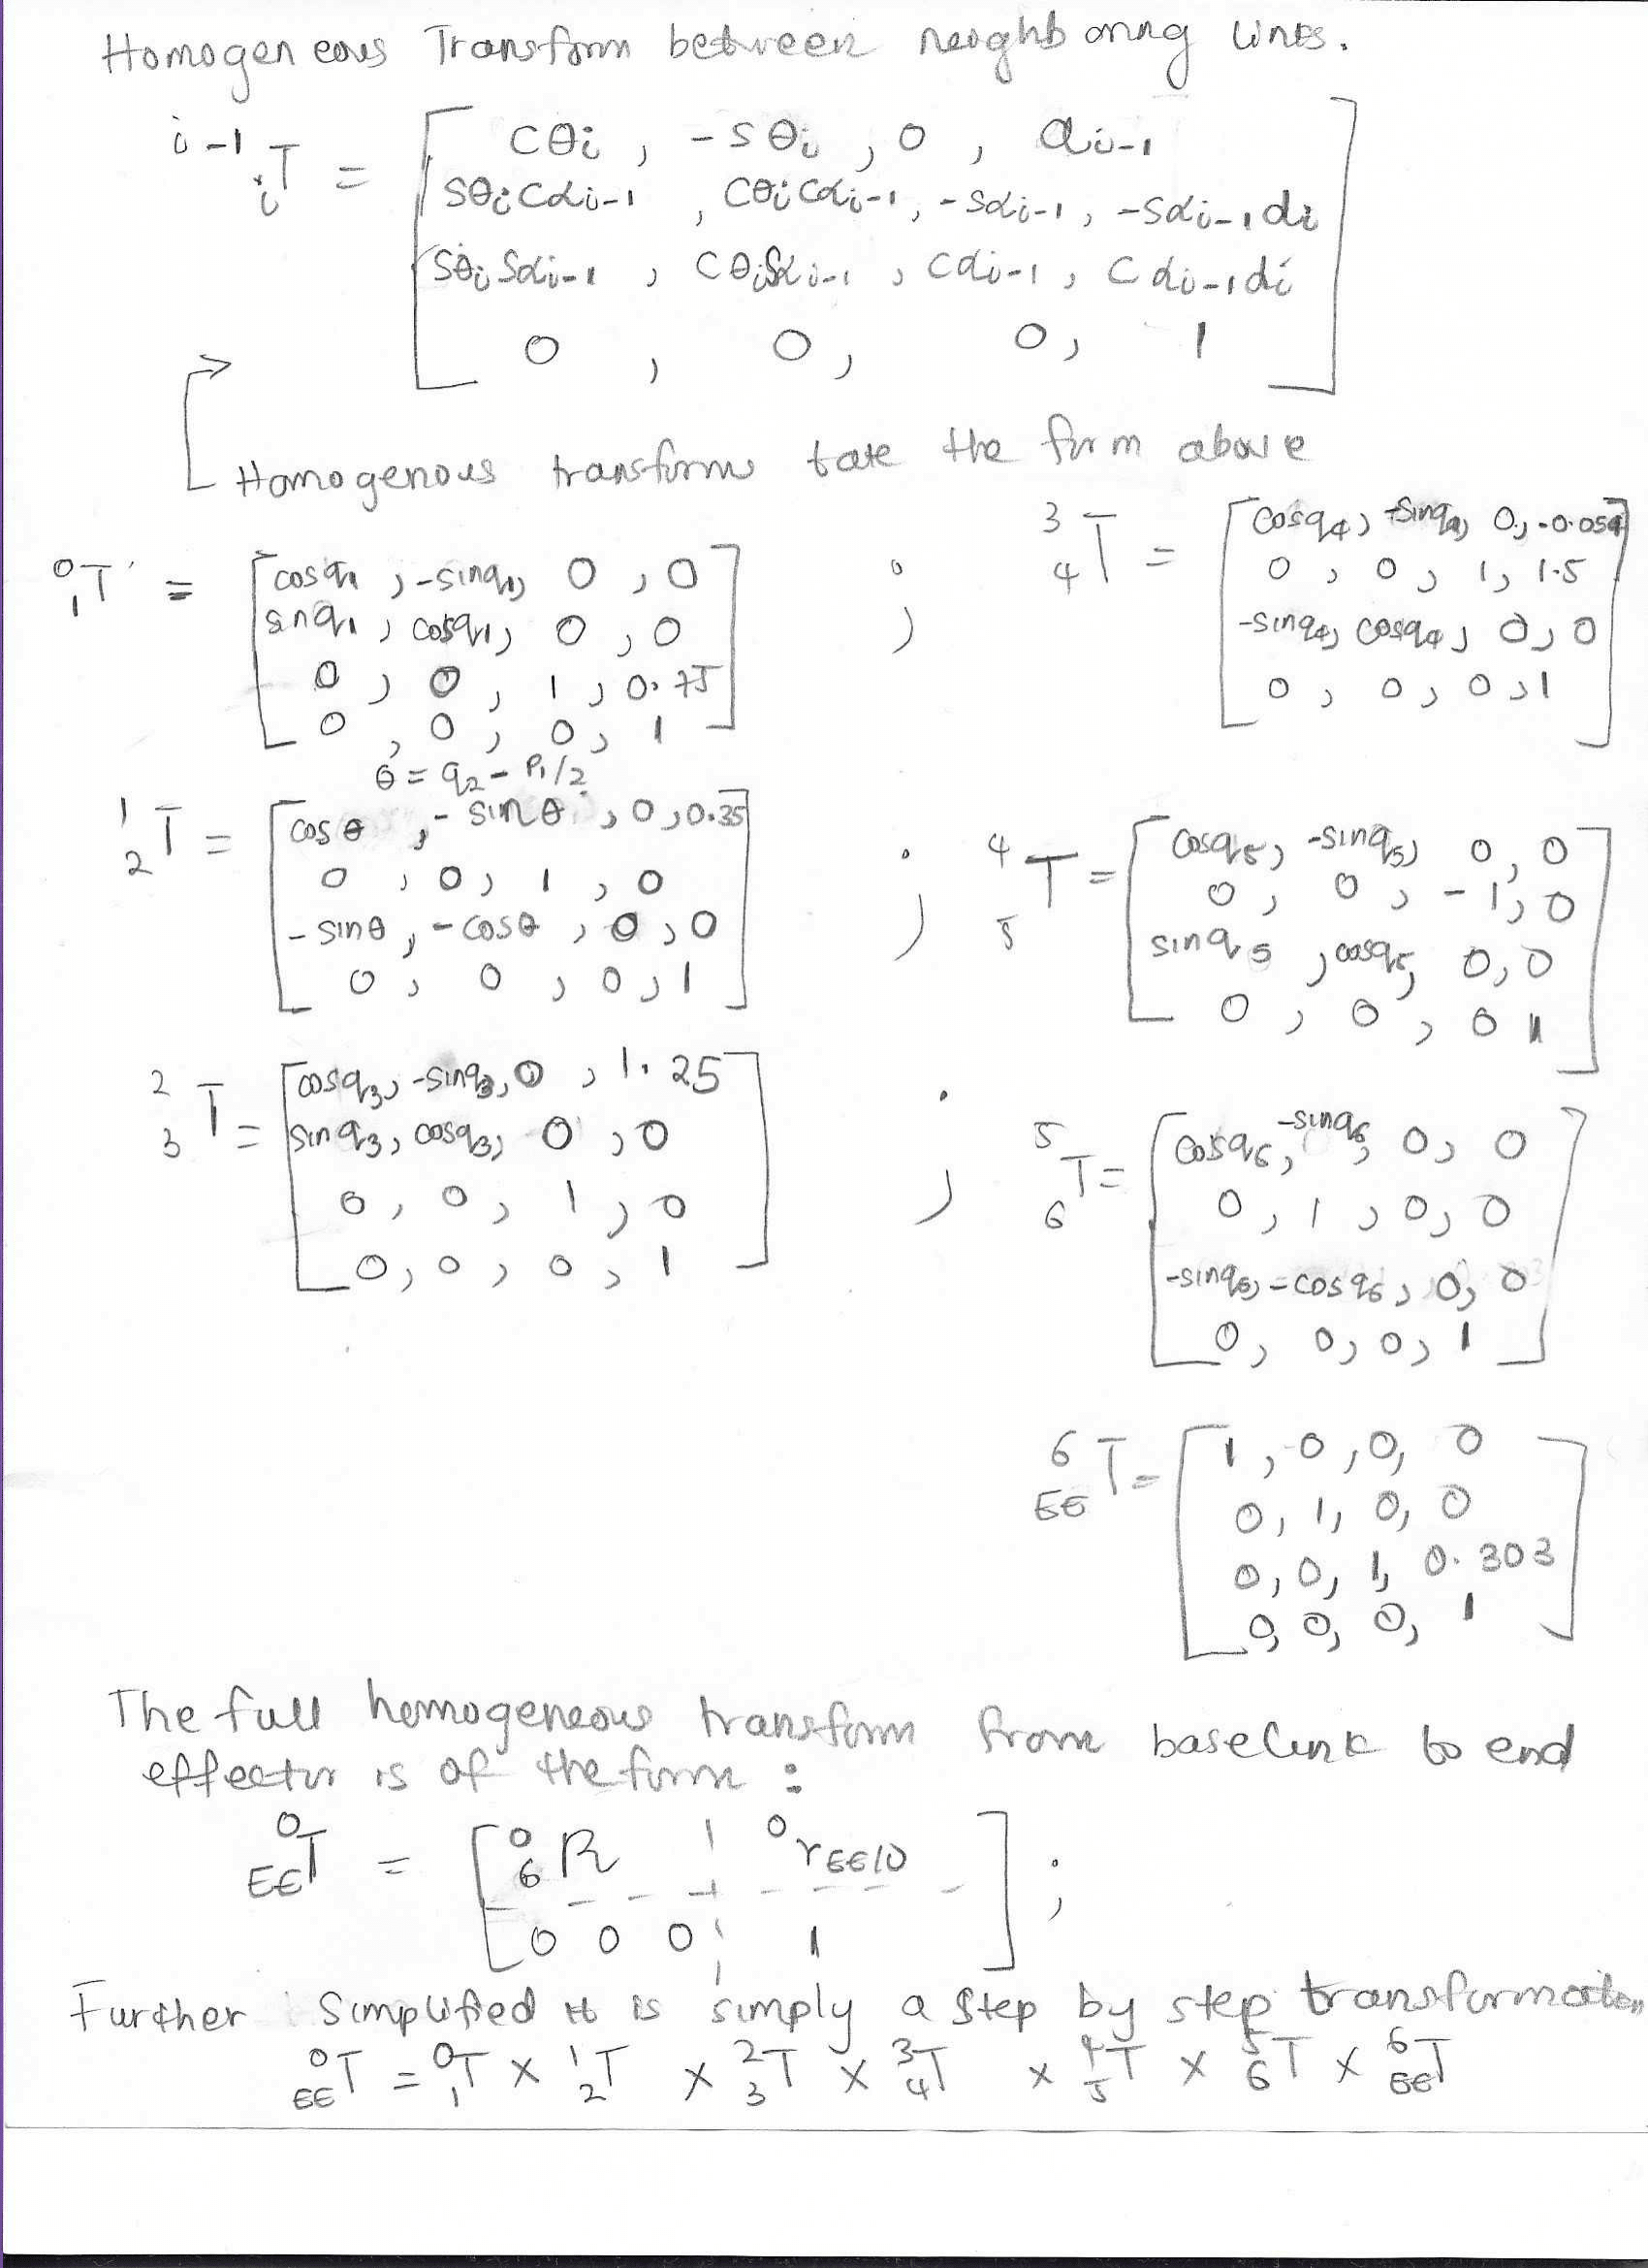 Homogeneous Transform between neighboring links.
i-1 iT = [ cθi , -sθi , 0 , ai-1
sθi cαi-1 , cθi cαi-1 , -sαi-1 , -sαi-1 di
sθi sαi-1 , cθi sαi-1 , cαi-1 , cαi-1 di
0 , 0 , 0 , 1 ]
Homogenous transforms take the form above
0 1T = [ cosq1 , -sinq1 , 0 , 0
sinq1 , cosq1 , 0 , 0
0 , 0 , 1 , 0.75
0 , 0 , 0 , 1 ]
;
3 4T = [ cosq4 , -sinq4 , 0 , -0.054
0 , 0 , 1 , 1.5
-sinq4 , cosq4 , 0 , 0
0 , 0 , 0 , 1 ]
θ = q2 - Pi/2
1 2T = [ cosθ , - sinθ , 0 , 0.35
0 , 0 , 1 , 0
- sinθ , - cosθ , 0 , 0
0 , 0 , 0 , 1 ]
;
4 5T = [ cosq5 , -sinq5 , 0 , 0
0 , 0 , -1 , 0
sinq5 , cosq5 , 0 , 0
0 , 0 , 0 1 ]
2 3T = [ cosq3 , -sinq3 , 0 , 1.25
sinq3 , cosq3 , 0 , 0
0 , 0 , 1 , 0
0 , 0 , 0 , 1 ]
;
5 6T = [ cosq6 , -sinq6 , 0 , 0
0 , 1 , 0 , 0
-sinq6 , -cosq6 , 0 , 0
0 , 0 , 0 , 1 ]
6 EET = [ 1 , 0 , 0 , 0
0 , 1 , 0 , 0
0 , 0 , 1 , 0.303
0 , 0 , 0 , 1 ]
The full homogeneous transform from baselink to end
effector is of the form :
0 EET = [ 0 6R | 0 rEE/0
0 0 0 | 1 ] ;
Further Simplified it is simply a step by step transformation
0 EET = 0 1T × 1 2T × 2 3T × 3 4T × 4 5T × 5 6T × 6 EET